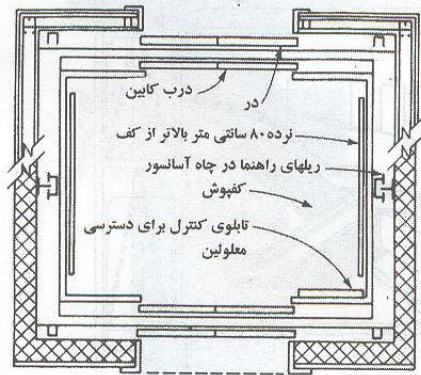 درب کابین
در
نرده ۸۰ سانتی متر بالاتر از کف
ریلهای راهنما در چاه آسانسور
کفپوش
تابلوی کنترل برای دسترسی
معلولین